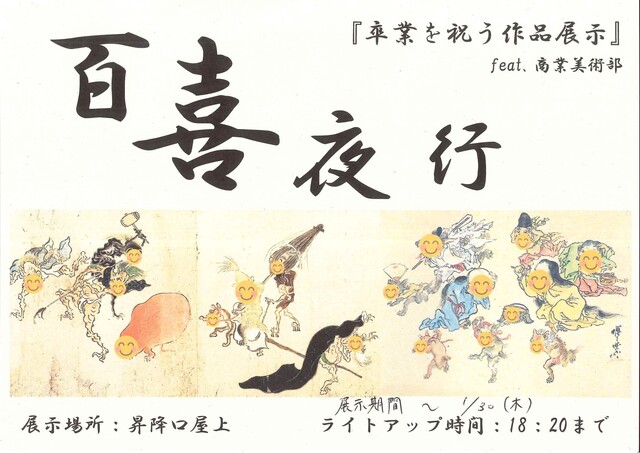 『卒業を祝う作品展示』
feat. 商業美術部
百喜夜行
展示期間 〜 1/30 (木)
展示場所：昇降口屋上
ライトアップ時間：18：20まで